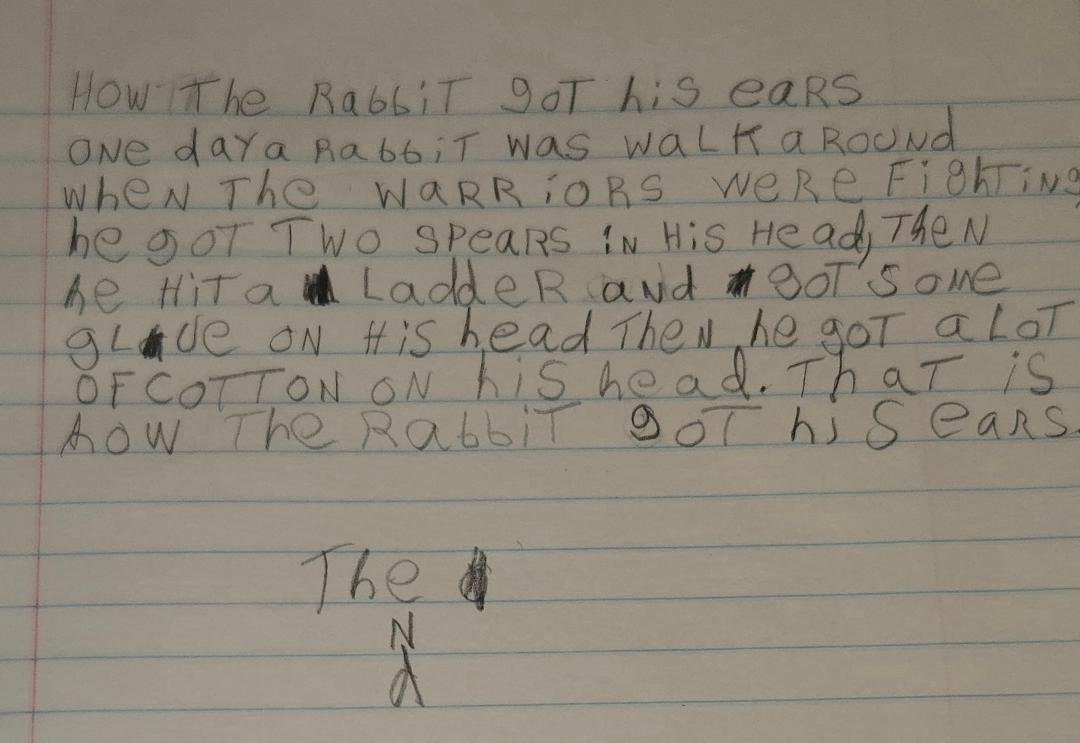 How The Rabbit got his ears
one day a Rabbit was walk around
when The warriors were Fighting
he got Two spears in His Head, Then
he Hit a Ladder and got some
glue on His head Then he got a lot
of cotton on his head. That is
how The Rabbit got his ears.
The
N
d